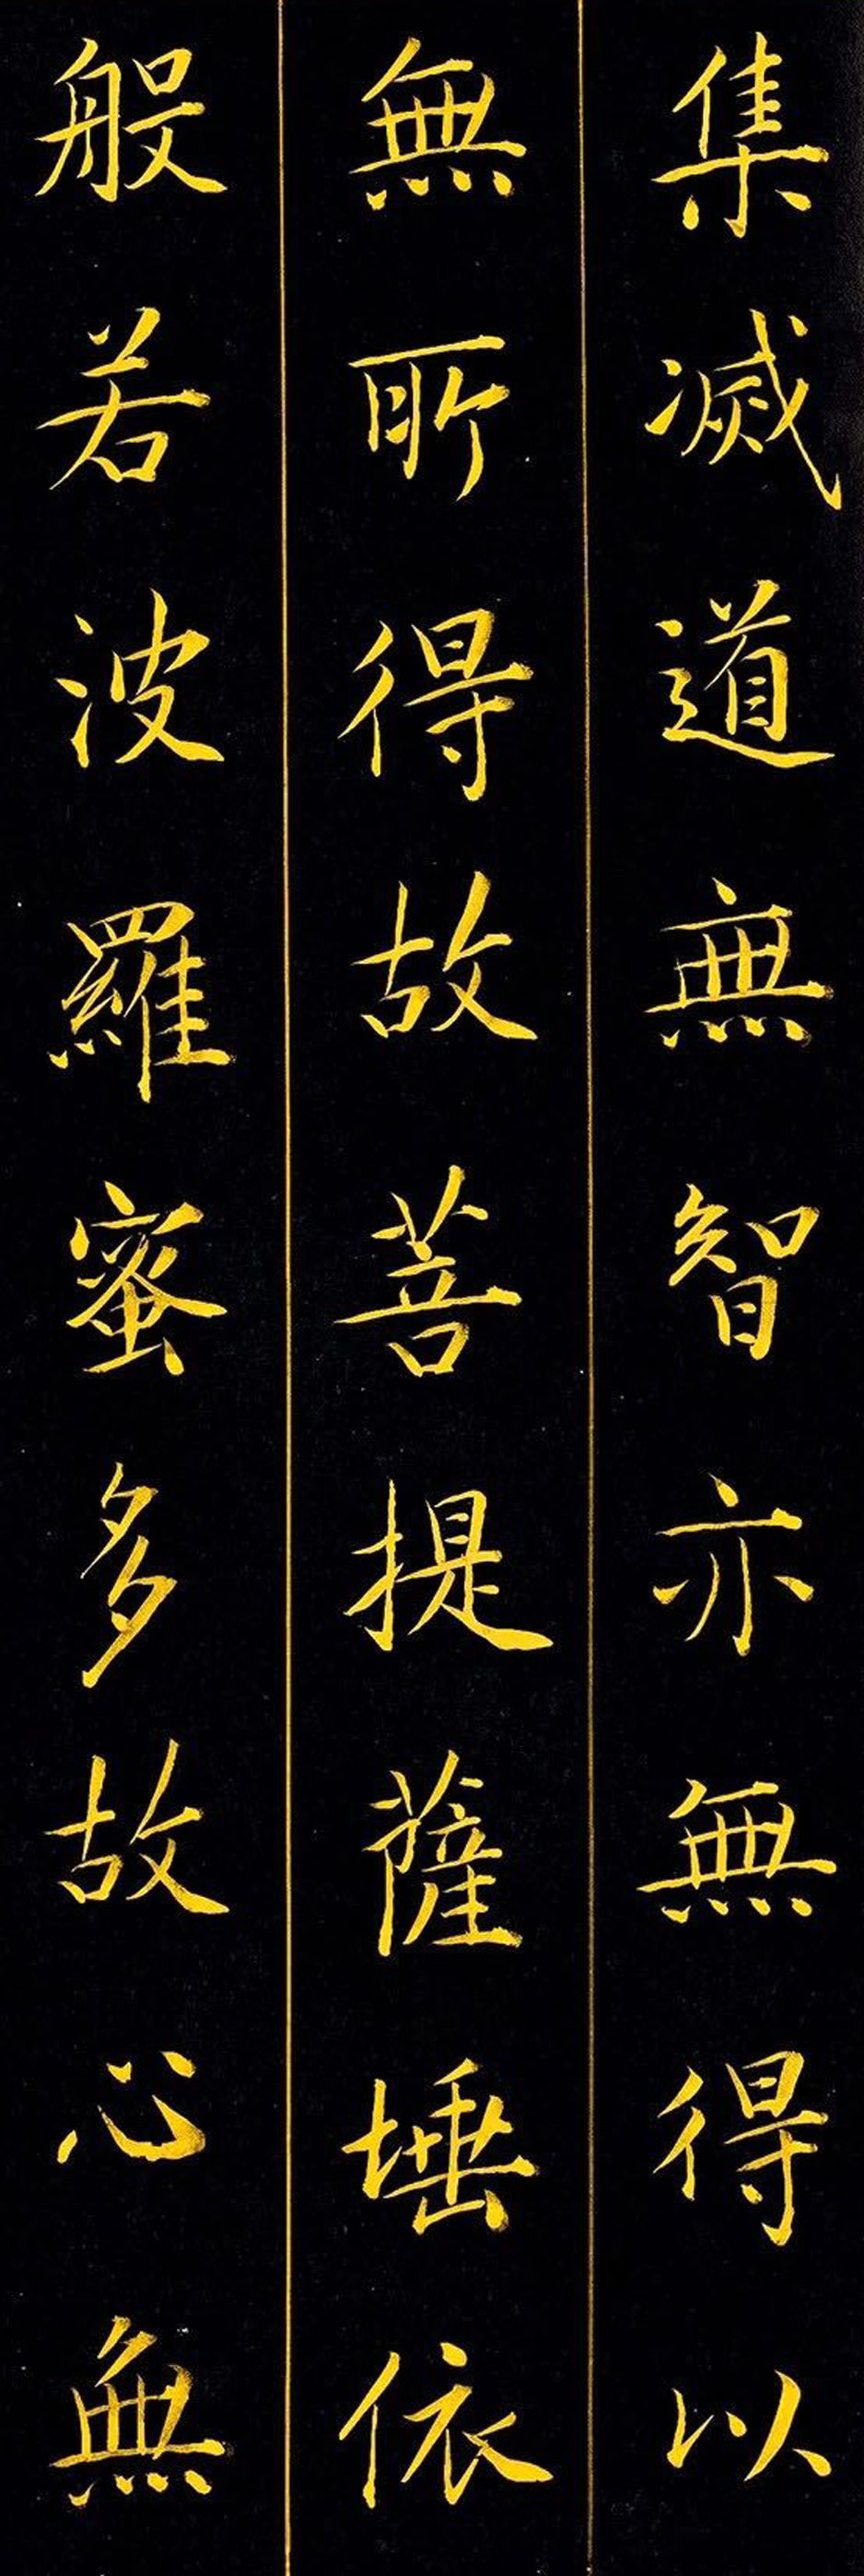 集滅道無智亦無得以
無所得故菩提薩埵依
般若波羅蜜多故心無